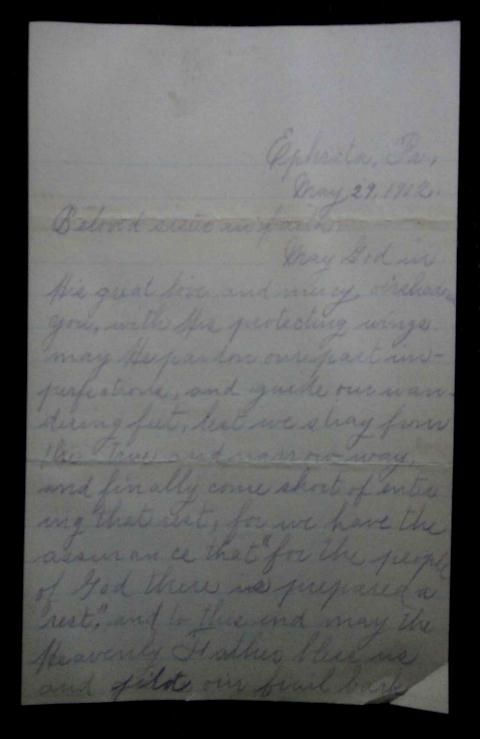 Ephrata, Pa.,
May 29, 1912.
Beloved sister in faith
May God in
His great love and mercy, overshadow
you, with His protecting wings.
may He pardon our past im-
perfections, and guide our wan-
dering feet, lest we stray from
the True and narrow way,
and finally come short of enter
ing that rest, for we have the
assurance that "for the people
of God there is prepared a
rest," and to this end may the
Heavenly Father bless us
and pilot our frail bark